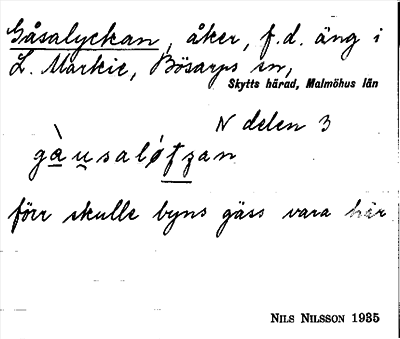 Gåsalyckan, åker, f.d. äng i
L. Markie, Bösarps sn,
Skytts härad, Malmöhus län
N delen 3
gàu̯saló̷tʒan
förr skulle byns gäss vara här
NILS NILSSON 1935